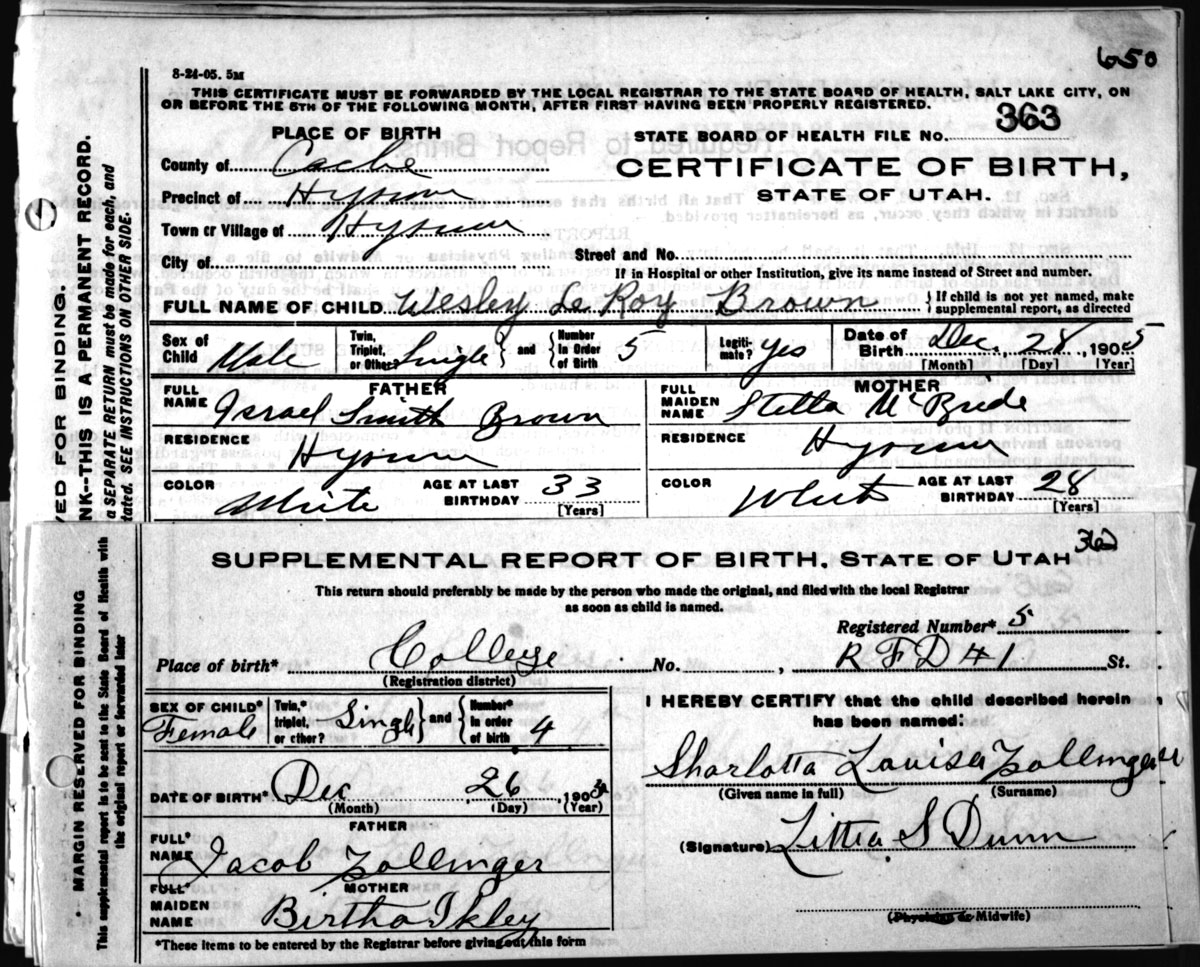 650
8-24-05. 5M
THIS CERTIFICATE MUST BE FORWARDED BY THE LOCAL REGISTRAR TO THE STATE BOARD OF HEALTH, SALT LAKE CITY, ON
OR BEFORE THE 5TH OF THE FOLLOWING MONTH, AFTER FIRST HAVING BEEN PROPERLY REGISTERED.
PLACE OF BIRTH
STATE BOARD OF HEALTH FILE NO. 363
County of Cache
CERTIFICATE OF BIRTH,
Precinct of Hyrum
STATE OF UTAH.
Town or Village of Hyrum
City of
Street and No.
If in Hospital or other Institution, give its name instead of Street and number.
FULL NAME OF CHILD Wesley Le Roy Brown } If child is not yet named, make supplemental report, as directed
Sex of Child Male Twin, Triplet, or Other? Single and Number In Order of Birth 5 Legitimate? Yes Date of Birth Dec., 28, 1905
[Month] [Day] [Year]
FATHER
FULL NAME Israel Smith Brown
MOTHER
FULL MAIDEN NAME Stella McBride
RESIDENCE Hyrum
RESIDENCE Hyrum
COLOR White AGE AT LAST BIRTHDAY 33 [Years]
COLOR White AGE AT LAST BIRTHDAY 28 [Years]
VED FOR BINDING.
NK--THIS IS A PERMANENT RECORD.
a SEPARATE RETURN must be made for each, and
tated. SEE INSTRUCTIONS ON OTHER SIDE.
SUPPLEMENTAL REPORT OF BIRTH, STATE OF UTAH
This return should preferably be made by the person who made the original, and filed with the local Registrar
as soon as child is named.
Registered Number* 5
Place of birth* College No. , R F D # 1 St.
(Registration district)
SEX OF CHILD* Female Twin,* triplet, or other? Single and Number* in order of birth 4
I HEREBY CERTIFY that the child described herein
has been named:
Sharlotta Louisa Zollinger
(Given name in full) (Surname)
DATE OF BIRTH* Dec , 26 , 190
(Month) (Day) (Year)
FATHER
FULL* NAME Jacob Zollinger
(Signature) Littia S Dunn
MOTHER
FULL* MAIDEN NAME Birtha Ikley
(Physician or Midwife)
*These items to be entered by the Registrar before giving out this form
MARGIN RESERVED FOR BINDING
This supplemental report is to be sent to the State Board of Health with
the original report or forwarded later